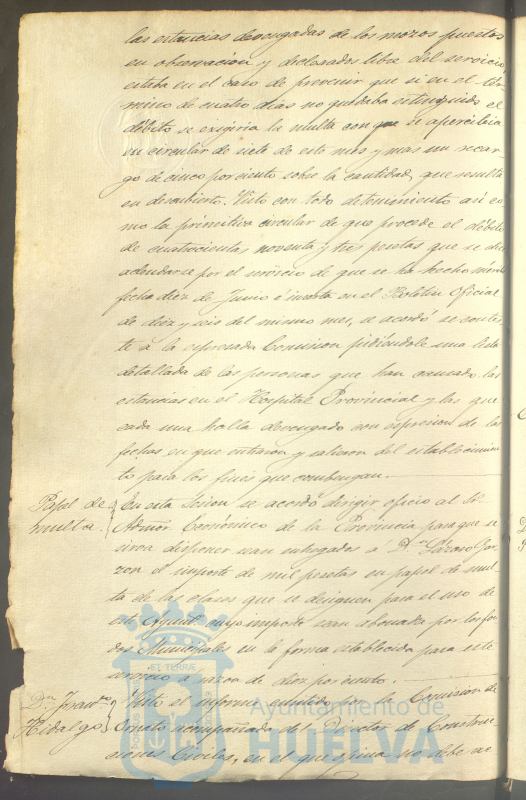 las estancias devengadas de los mozos puestos
en observacion y declarados libre del servicio
estaba en el caso de prevenir que si en el ter-
mino de cuatro dias no quedaba estinguido el
débito se exigiria la multa con que se apercibia
en circular de siete de este mes y mas un recar-
go de cinco por ciento sobre la cantidad que resulta
en descubierto. Visto con todo detenimiento asi co-
mo la primitiva circular de que procede el débito
de cuatrocientas noventa y tres pesetas que se dice
adeudarse por el servicio de que se ha hecho mérito
fecha diez de Junio é inserta en el Boletin Oficial
de diez y seis del mismo mes, se acordó se contes-
te á la espresada Comision pidiéndole una lista
detallada de las personas que han causado las
estancias en el Hospital Provincial y las que
cada una halla devengado con espresion de las
fechas en que entraron y salieron del establecimien-
to para los fines que combengan.
Papel de
multa.
En esta sesion se acordó dirigir oficio al Sr
Admor Económico de la Provincia para que se
sirva disponer sean entregados a Dn Lázaro Gar-
zon el importe de mil pesetas en papel de mul-
ta de las clases que se designen para el uso de
este Ayunto cuyo importe sera abonado por los fon-
dos Municipales en la forma establecida para este
servicio a razon de diez por ciento.
Dn Franco
Hidalgo
Visto el informe emitido por la Comision de
Ornato acompañada del Director de Construc-
siones Civiles, en el que opina no debe ac
ET TERRÆ
Ayuntamiento de
HUELVA